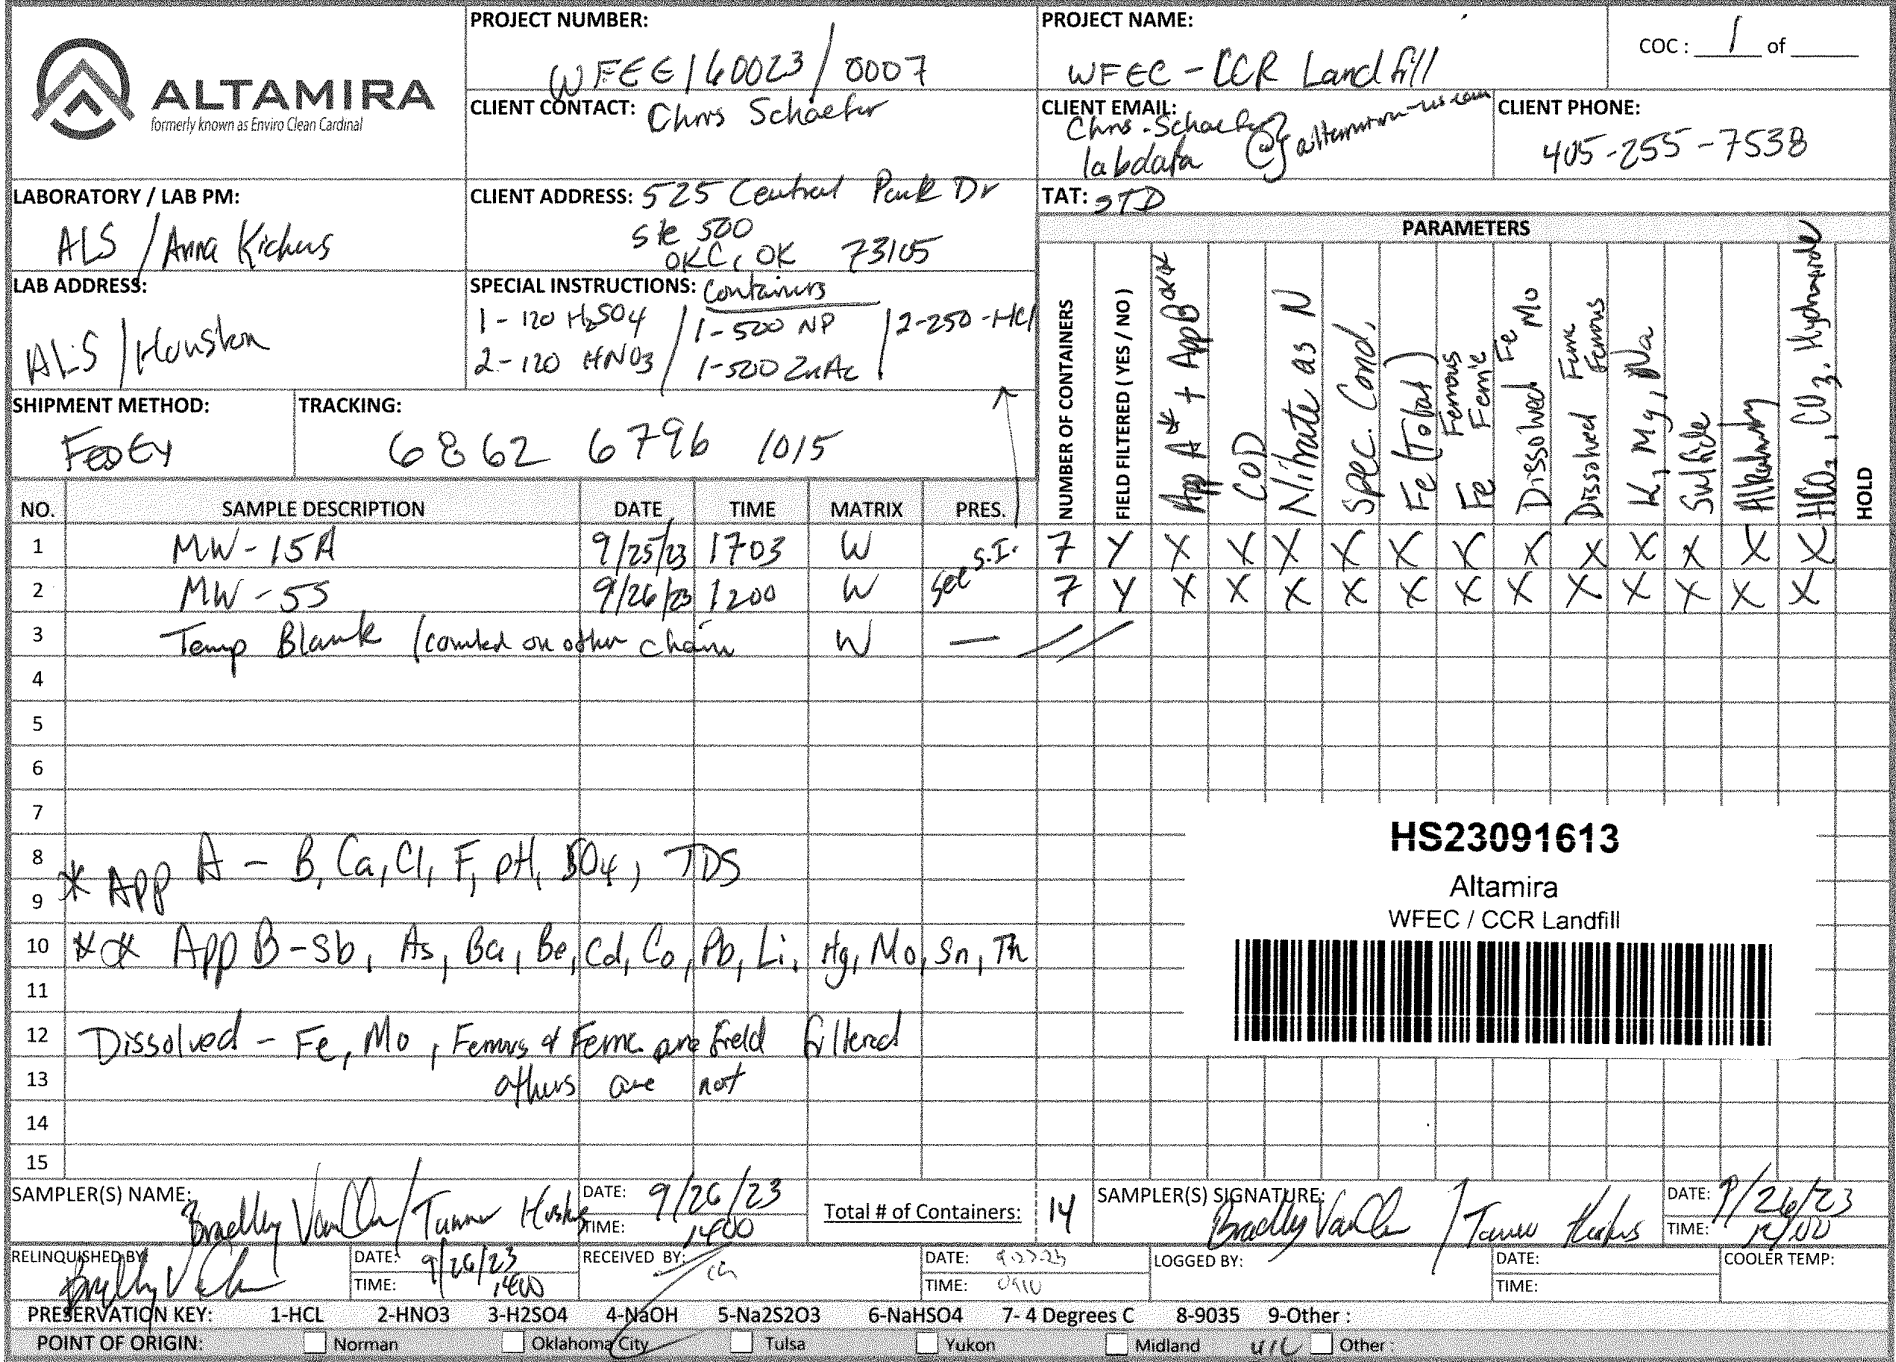 ALTAMIRA
formerly known as Enviro Clean Cardinal
PROJECT NUMBER:
WFEE160023/0007
PROJECT NAME:
WFEC - CCR Landfill
COC : 1 of
CLIENT CONTACT: Chris Schaefer
CLIENT EMAIL:
Chris.Schaefer
labdata @altamira-us.com
CLIENT PHONE:
405-255-7538
LABORATORY / LAB PM:
ALS / Anna Kickers
CLIENT ADDRESS: 525 Central Park Dr
Ste 500
OKC, OK 73105
TAT: STD
PARAMETERS
LAB ADDRESS:
ALS / Houston
SPECIAL INSTRUCTIONS: Containers
1 - 120 H2SO4 / 1-500 NP / 2-250-HCl
2 - 120 HNO3 / 1-500 ZnAc /
SHIPMENT METHOD:
FedEx
TRACKING:
6862 6796 1015
NUMBER OF CONTAINERS
FIELD FILTERED ( YES / NO )
App A* + App B**
COD
Nitrate as N
Spec. Cond.
Fe (Total)
Fe Ferrous Ferric
Dissolved Fe Mo
Dissolved Ferric Ferrous
K, Mg, Na
Sulfide
Alkalinity
HCO3, CO3, Hydroxide
HOLD
NO. SAMPLE DESCRIPTION DATE TIME MATRIX PRES.
1 MW-15A 9/25/23 1703 W See S.I. 7 Y X X X X X X X X X X X X
2 MW-5S 9/26/23 1200 W 7 Y X X X X X X X X X X X X
3 Temp Blank (counted on other chain W —
4
5
6
7
8
9
* App A - B, Ca, Cl, F, pH, SO4, TDS
10 ** App B - Sb, As, Ba, Be, Cd, Co, Pb, Li, Hg, Mo, Sn, Th
11
12 Dissolved - Fe, Mo, Ferrous & Ferric are field filtered
13 others are not
14
15
HS23091613
Altamira
WFEC / CCR Landfill
SAMPLER(S) NAME:
Bradley / Tanner
DATE: 9/26/23
TIME: 1400
Total # of Containers: 14
SAMPLER(S) SIGNATURE:
Bradley / Tanner
DATE: 9/26/23
TIME: 1400
RELINQUISHED BY:
DATE: 9/26/23
TIME: 1400
RECEIVED BY:
DATE: 9-27-23
TIME: 0910
LOGGED BY:
DATE:
TIME:
COOLER TEMP:
PRESERVATION KEY: 1-HCL 2-HNO3 3-H2SO4 4-NaOH 5-Na2S2O3 6-NaHSO4 7- 4 Degrees C 8-9035 9-Other :
POINT OF ORIGIN: Norman Oklahoma City Tulsa Yukon Midland Other :